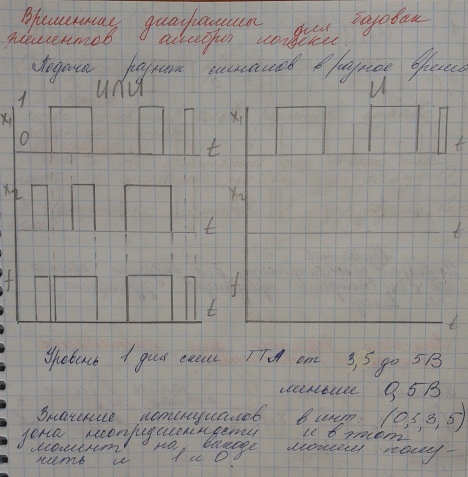 Временные диаграммы для базовых
элементов алгебры логики
Подача разных сигналов в разное время
ИЛИ И
x₁ 1 0 t x₁ t
x₂ t x₂ t
f t f t
Уровень 1 для схем ТТЛ от 3,5 до 5В
меньше 0,5В
Значение потенциалов в инт. (0,5, 3,5)
зона неопределенности и в этот
момент на выходе можем полу-
чить и 1 и 0